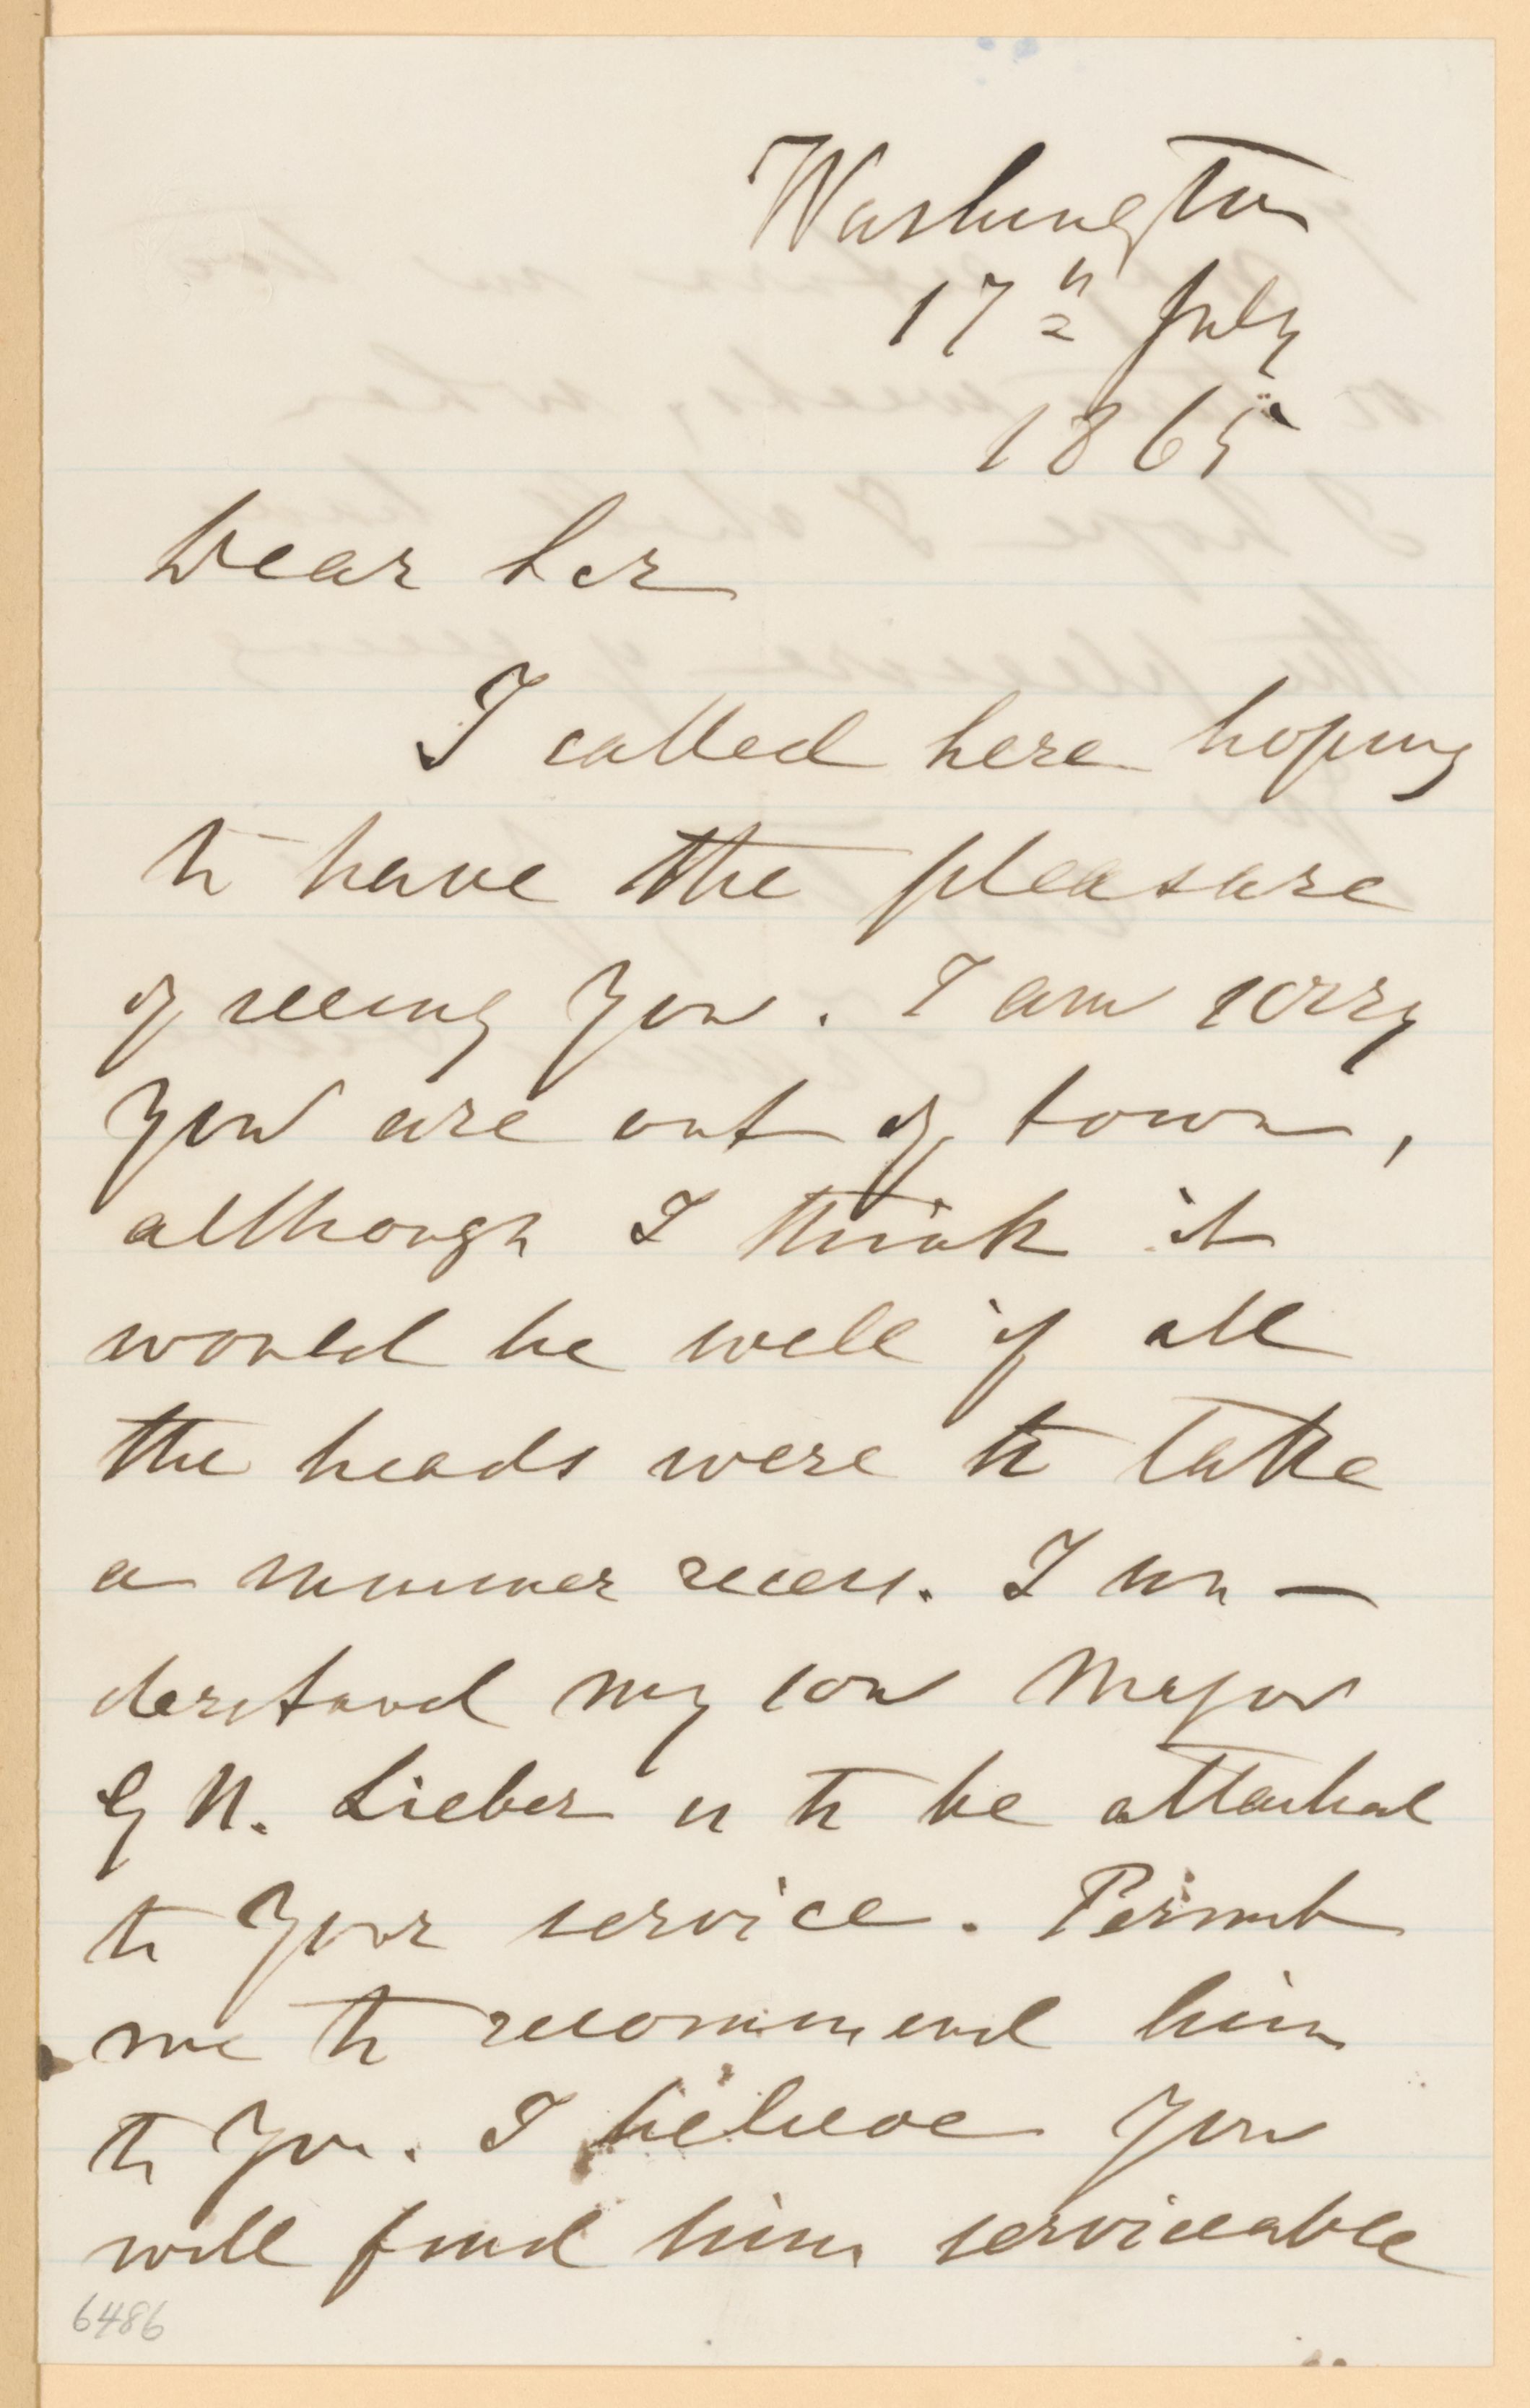 Washington
17th July
1865
Dear Sir
I called here hoping
to have the pleasure
of seeing You. I am sorry
You are out of town,
although I think it
would be well if all
the heads were to take
a summer recess. I un-
derstand my son Major
G N. Lieber is to be attached
to Your service. Permit
me to recommend him
to You. I believe You
will find him serviceable
6486